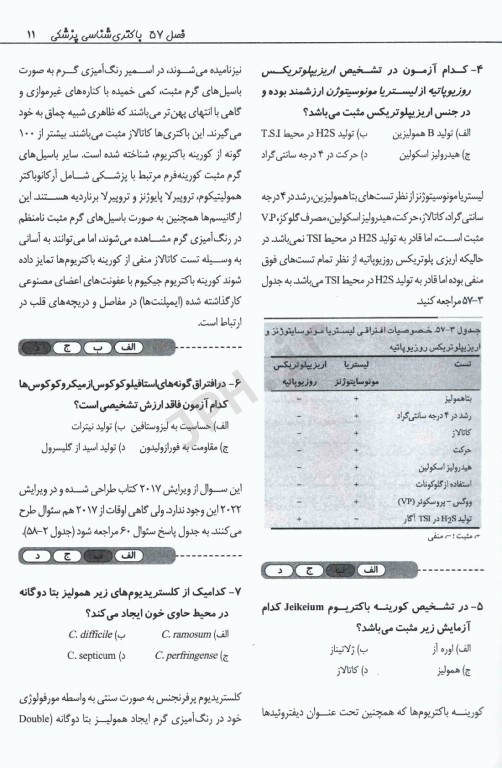 فصل ۵۷ باکتری‌شناسی پزشکی ۱۱
۴- کدام آزمون در تشخیص اریزیپلوتریکس
روزیوپاتیه از لیستریا مونوسیتوژن ارزشمند بوده و
در جنس اریزیپلوتریکس مثبت می‌باشد؟
الف) تولید B همولیزین ب) تولید H2S در محیط T.S.I
ج) هیدرولیز اسکولین د) حرکت در ۴ درجه سانتی‌گراد
لیستریا مونوسیتوژنز از نظر تست‌های بتا همولیزین، رشد در ۴ درجه
سانتی‌گراد، کاتالاز، حرکت، هیدرولیز اسکولین، مصرف گلوکز، V.P
مثبت است، اما قادر به تولید H2S در محیط TSI نمی‌باشد. در
حالیکه اریزی پلوتریکس روزیوپاتیه از نظر تمام تست‌های فوق
منفی بوده اما قادر به تولید H2S در محیط TSI می‌باشد. به جدول
۳-۵۷ مراجعه کنید.
جدول ۳-۵۷. خصوصیات افتراقی لیستریا مونوسایتوژنز و
اریزیپلوتریکس روزیوپاتیه
تست لیستریا مونوسایتوژنز اریزیپلوتریکس روزیوپاتیه
بتاهمولیز + -
رشد در ۴ درجه سانتی‌گراد + -
کاتالاز + -
حرکت + -
هیدرولیز اسکولین + -
استفاده از گلوکونات + -
ووگس - پروسکوئر (VP) + -
تولید H2S در TSI آگار - +
+، مثبت؛ -، منفی
الف ب ج د
۵- در تشخیص کورینه باکتریوم Jeikeium کدام
آزمایش زیر مثبت می‌باشد؟
الف) اوره آز ب) ژلاتیناز
ج) همولیز د) کاتالاز
کورینه باکتریوم‌ها که همچنین تحت عنوان دیفتروئیدها
نیز نامیده می‌شوند، در اسمیر رنگ‌آمیزی گرم به صورت
باسیل‌های گرم مثبت، کمی خمیده با کناره‌های غیرموازی و
گاهی با انتهای پهن‌تر می‌باشند که ظاهری شبیه چماق به خود
می‌گیرند. این باکتری‌ها کاتالاز مثبت می‌باشند. بیشتر از ۱۰۰
گونه از کورینه باکتریوم، شناخته شده است. سایر باسیل‌های
گرم مثبت کورینه‌فرم مرتبط با پزشکی شامل آرکانوباکتر
همولیتیکوم، تروپیرلا پایوژنز و تروپیرلا برناردیه هستند. این
ارگانیسم‌ها همچنین به صورت باسیل‌های گرم مثبت نامنظم
در رنگ‌آمیزی گرم مشاهده می‌شوند، اما می‌توانند به آسانی
به وسیله تست کاتالاز منفی از کورینه باکتریوم‌ها تمایز داده
شوند کورینه باکتریوم جیکیوم با عفونت‌های اعضای مصنوعی
کار گذاشته شده (ایمپلنت‌ها) در مفاصل و دریچه‌های قلب در
ارتباط است.
الف ب ج د
۶- در افتراق گونه‌های استافیلوکوکوس از میکروکوکوس‌ها
کدام آزمون فاقد ارزش تشخیصی است؟
الف) حساسیت به لیزوستافین ب) تولید نیترات
ج) مقاومت به فورازولیدون د) تولید اسید از گلیسرول
این سوال از ویرایش ۲۰۱۷ کتاب طراحی شده و در ویرایش
۲۰۲۲ این وجود ندارد. ولی گاهی اوقات از ۲۰۱۷ هم سئوال طرح
می‌کنند. به جدول پاسخ سئوال ۶۰ مراجعه شود (جدول ۲-۵۸).
الف ب ج د
۷- کدامیک از کلستریدیوم‌های زیر همولیز بتا دوگانه
در محیط حاوی خون ایجاد می‌کند؟
الف) C. ramosum ب) C. difficile
ج) C. perfringense د) C. septicum
کلستریدیوم پرفرنجنس به صورت سنتی به واسطه مورفولوژی
خود در رنگ‌آمیزی گرم ایجاد همولیز بتا دوگانه (Double